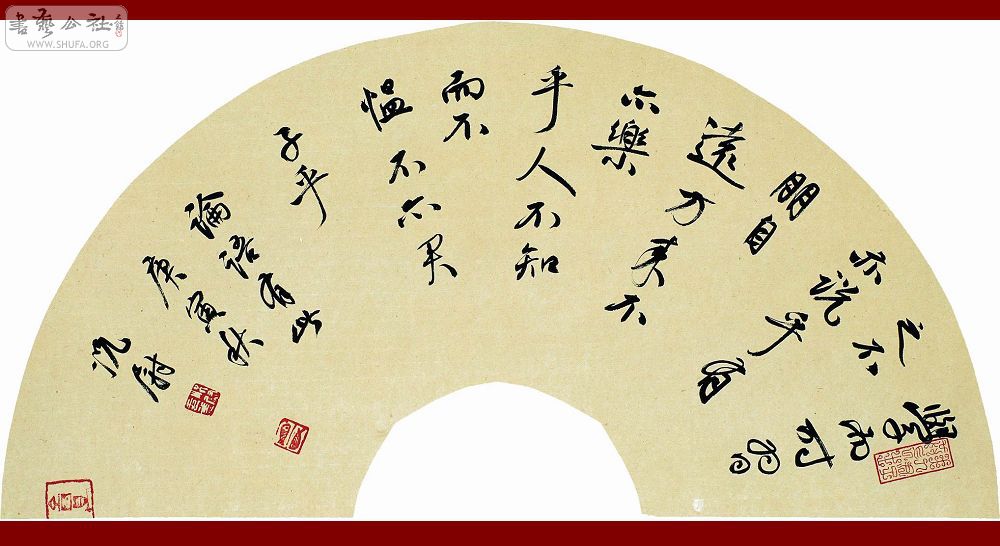 學而时習
之不
亦说乎有
朋自
遠方来不
亦樂
乎人不知
而不
愠不亦君
子乎
論語有此
庚寅秋
書藝公社
WWW.SHUFA.ORG